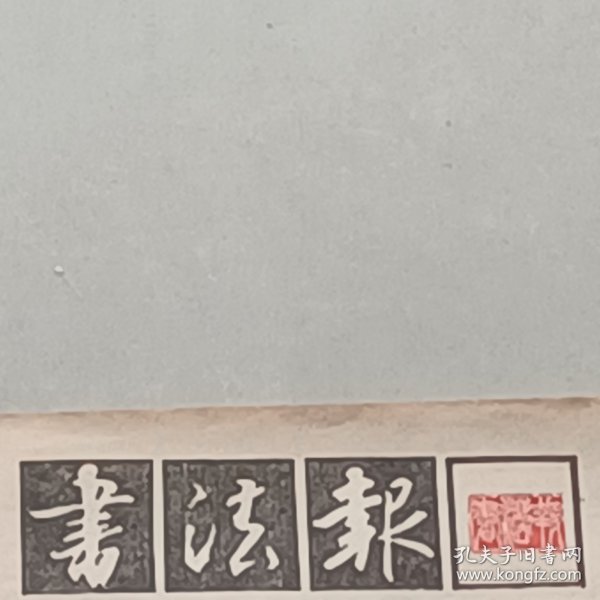 書法報
孔夫子旧书网
www.kongfz.com